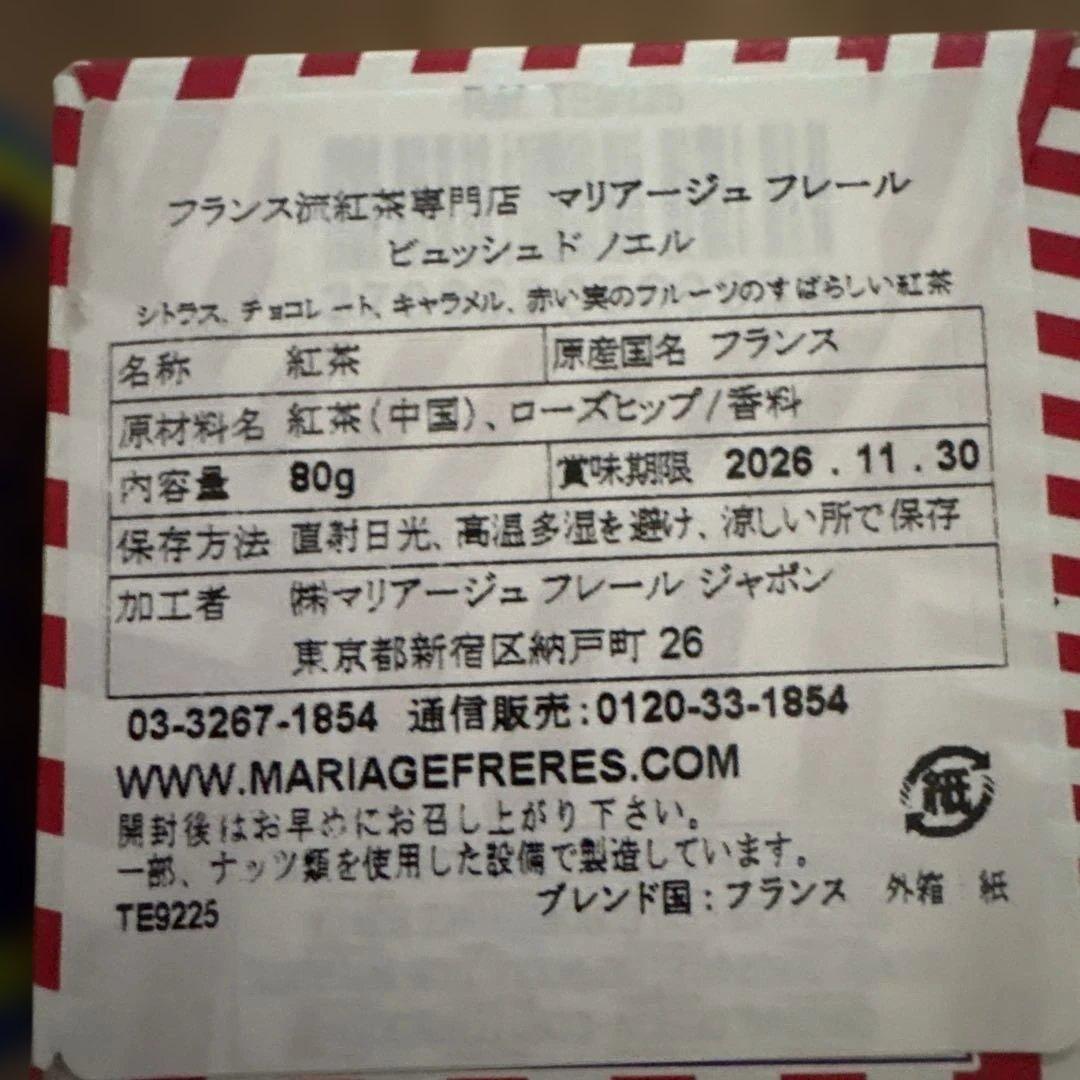 フランス流紅茶専門店 マリアージュ フレール
ビュッシュド ノエル
シトラス、チョコレート、キャラメル、赤い実のフルーツのすばらしい紅茶
名称 紅茶 原産国名 フランス
原材料名 紅茶(中国)、ローズヒップ/香料
内容量 80g 賞味期限 2026 . 11 . 30
保存方法 直射日光、高温多湿を避け、涼しい所で保存
加工者 ㈱マリアージュ フレール ジャポン
東京都新宿区納戸町 26
03-3267-1854 通信販売:0120-33-1854
WWW.MARIAGEFRERES.COM
紙
開封後はお早めにお召し上がり下さい。
一部、ナッツ類を使用した設備で製造しています。
TE9225 ブレンド国:フランス 外箱 紙